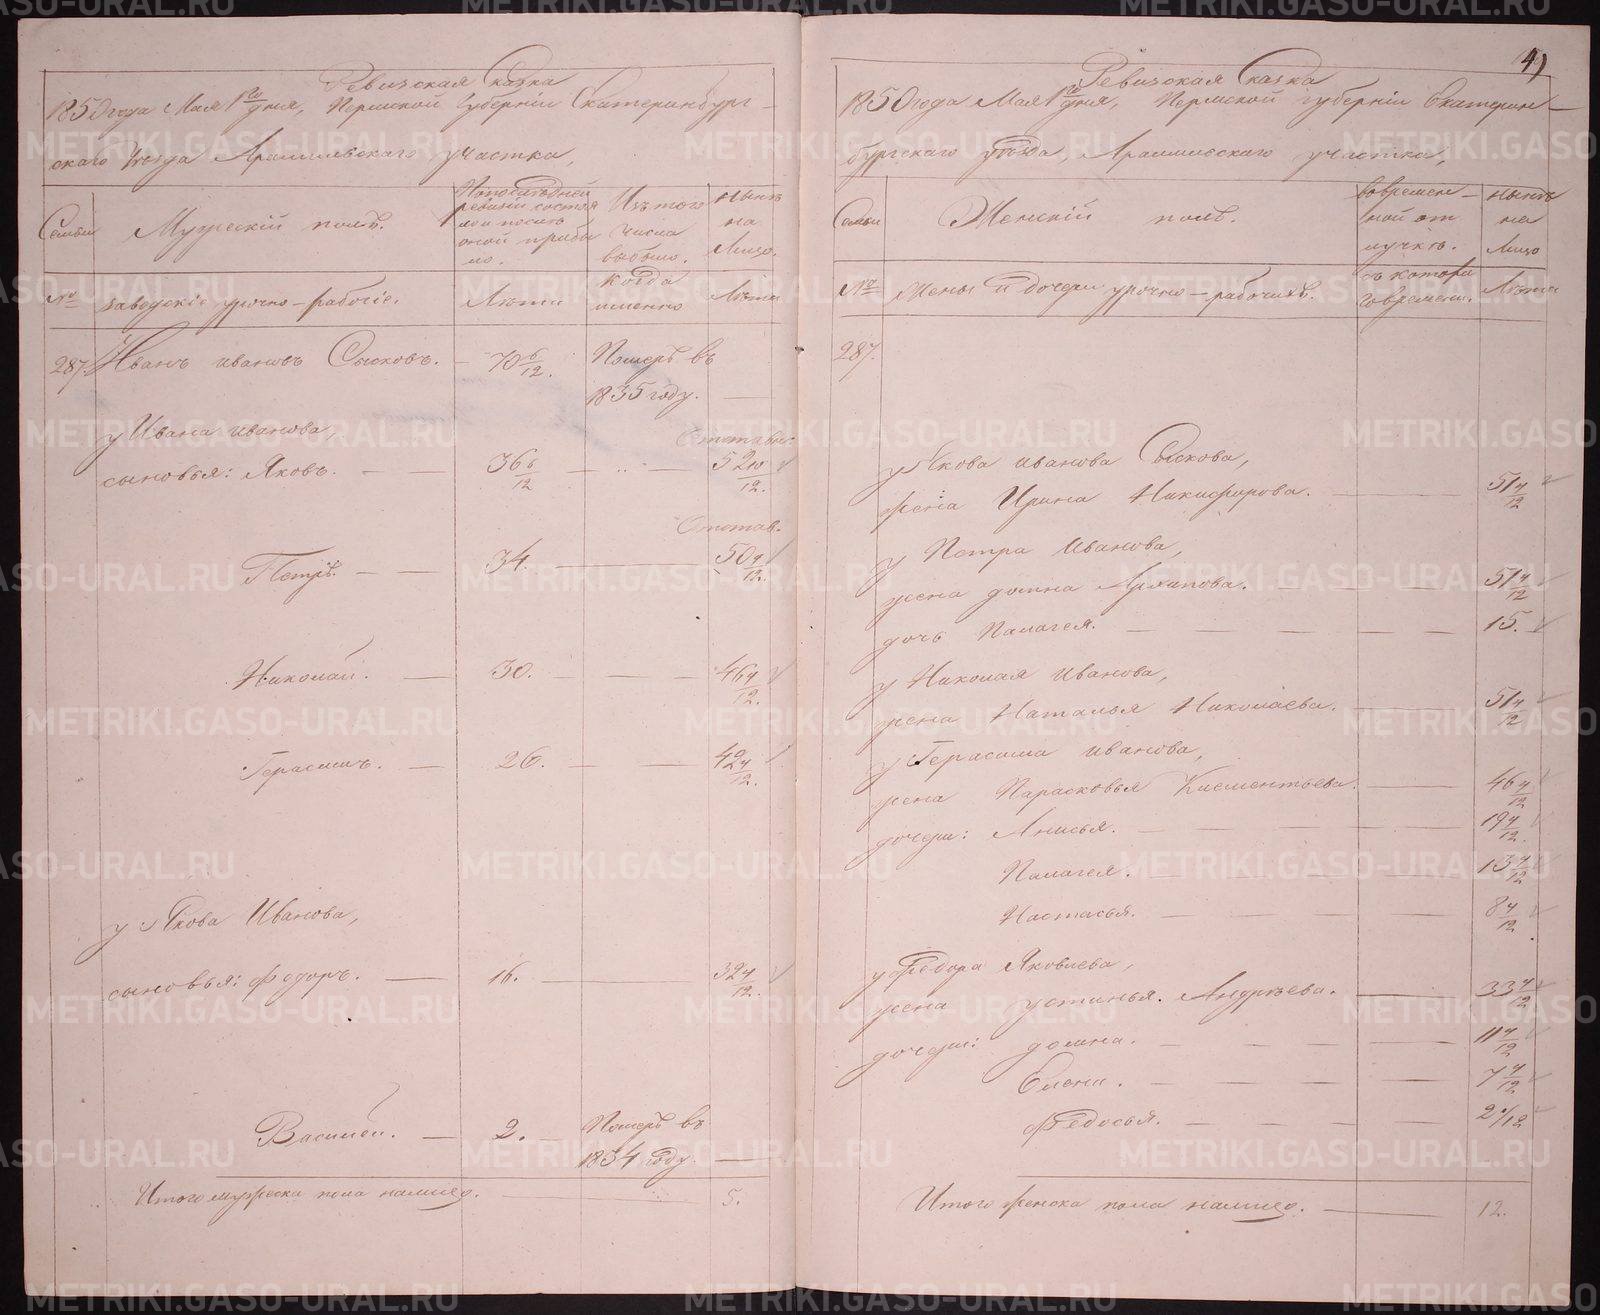 4)
Ревизская Сказка
1850 года Мая 1го дня, Пермской губернiи Екатеринбург-
скаго Уезда Арамильскаго участка,
Семьи
Мужескiй полъ.
По последней ревизiи состояло и после оной прибыло.
Изъ того числа выбыло.
Ныне на лицо.
№
Заводскiе урочно-рабочiе.
Лета
Когда именно
Лета
287. Иванъ Ивановъ Сысковъ. — 70 6/12. Померъ въ
1835 году. —
у Ивана Иванова,
Отставн.
сыновья: Яковъ. — — 36 6/12 — " — 52 10/12.
Отстав.
Петръ. — — 34. — 50 4/12.
Николай. — 30. — — — 46 4/12.
Герасимъ. — 26. — — 42 4/12.
у Якова Иванова,
сыновья: Федоръ. — 16. — — 32 4/12.
Василей. — 2. — Померъ въ
1834 году. —
Итого мужеска пола налицо. — 5.
Ревизская Сказка
1850 года Мая 1го дня, Пермской губернiи Екатерин-
бургскаго уезда, Арамильскаго участка,
Семьи
Женскiй полъ.
Во временной отлучкѣ.
Нынѣ на лицо
№
Жены и дочери урочно-рабочихъ.
съ котораго времени.
Лета
287.
у Якова Иванова Сыскова,
жена Ирина Никифорова. — 51 4/12
у Петра Иванова,
жена Домна Архипова. — — — 51 4/12
дочь Палагея. — — — 15.
у Николая Иванова,
жена Наталья Николаева. — 51 4/12
у Герасима Иванова,
жена Парасковья Клементьева. — 46 4/12
дочери: Анисья. — — — 19 4/12.
Палагея. — — — 13 4/12
Настасья. — — — 8 4/12
у Федора Яковлева,
жена Устинья Андреева. — 33 4/12
дочери: Домна. — — — 11 4/12
Елена. — — — 7 4/12.
Федосья. — — — 2 4/12
Итого женска пола налицо. — 12.
METRIKI.GASO-URAL.RU